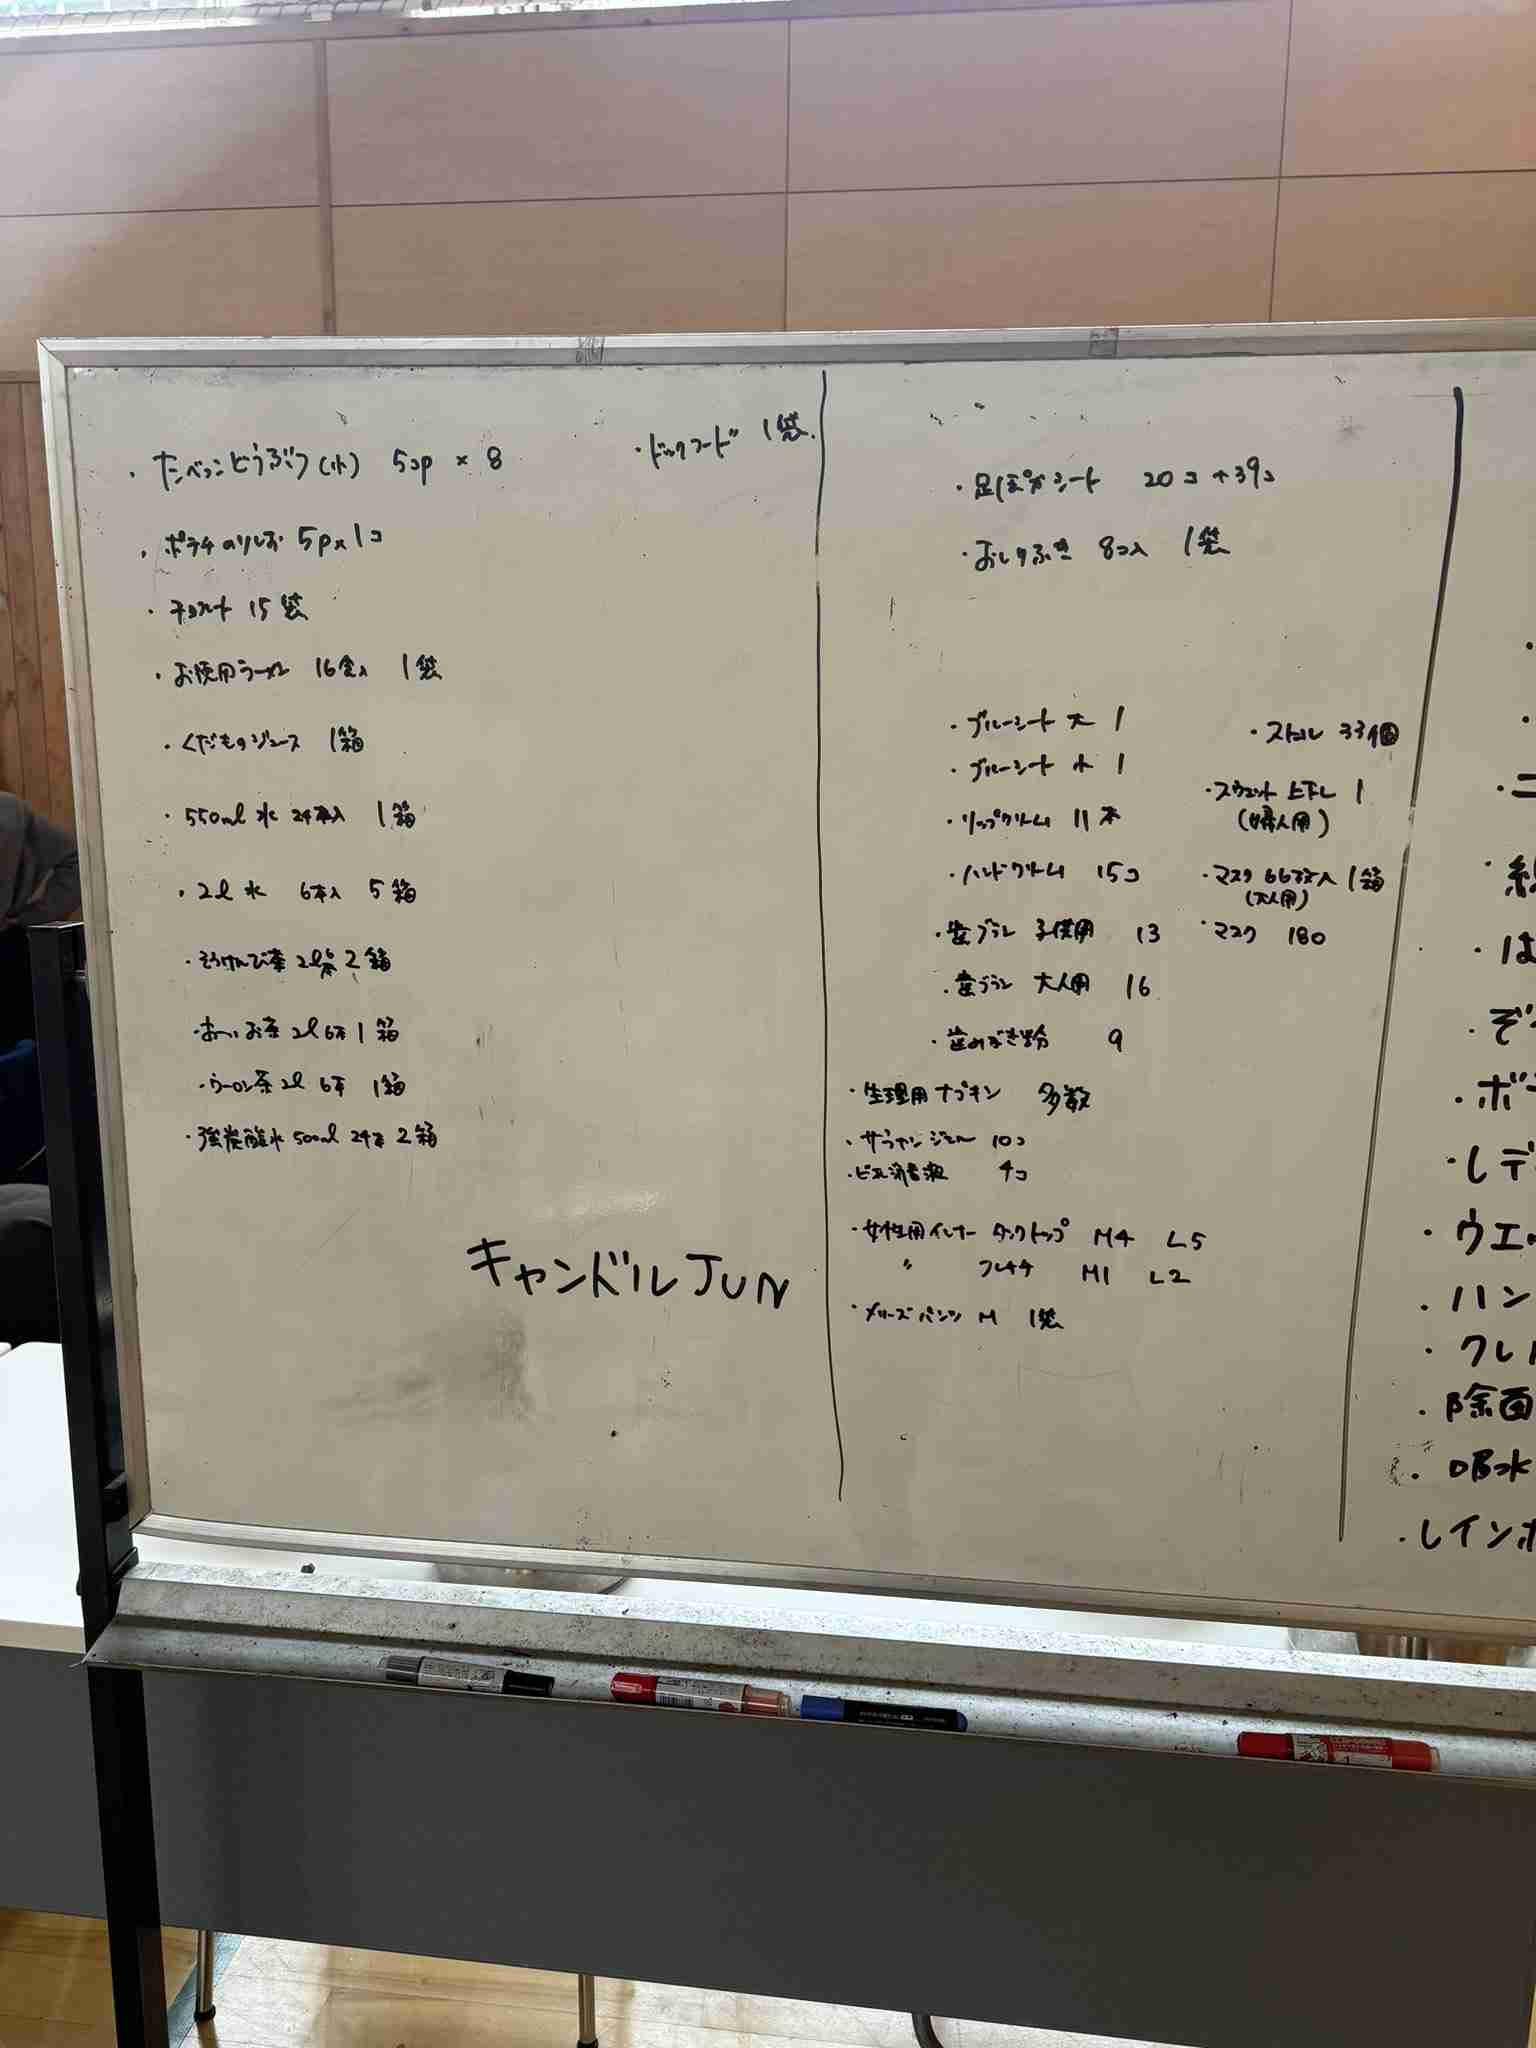 ・たべっこどうぶつ(小) 5コp × 8
・ドックフード 1袋.
・ポテチのりしお 5p×1コ
・チョコレート 15袋
・お使用ラーメン 16食入 1袋
・くだものジュース 1箱
・550ml 水 24本入 1箱
・2l 水 6本入 5箱
・そうけんび茶 2l6本 2箱
・おーいお茶 2l 6本 1箱
・ウーロン茶 2l 6本 1箱
・強炭酸水 500ml 24本 2箱
キャンドルJUN
・足ぽかシート 20コ+39コ
・おしりふき 8コ入 1袋
・ブルーシート 大 1
・ブルーシート 小 1
・リップクリーム 11本
・ハンドクリーム 15コ
・歯ブラシ 子供用 13
・歯ブラシ 大人用 16
・歯みがき粉 9
・生理用ナプキン 多数
ジェル 10コ
消毒液 4コ
・女性用インナー タンクトップ M4 L5
〃 M1 L2
・メリーズパンツ M 1袋
・ストール 33個
・スウェット 上下 1
(婦人用)
・マスク 66枚入 1箱
(大人用)
・マスク 180
・は
・ぞ
・ボ
・レデ
・ウエ
・ハン
・クレ
・除菌
・レインボ